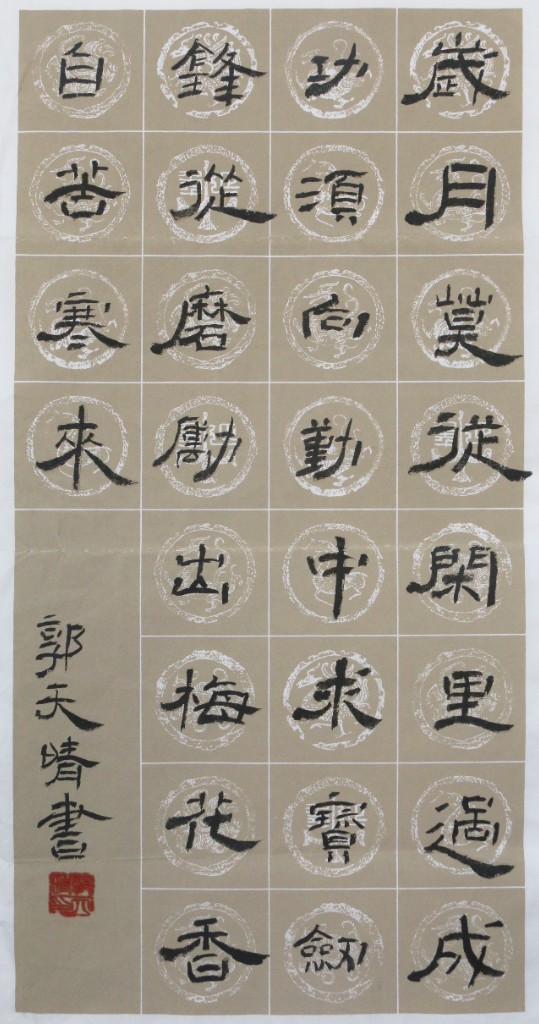 歲月莫從閑里過成
功須向勤中求寶劔
鋒從磨勵出梅花香
自苦寒來
郭天晴書